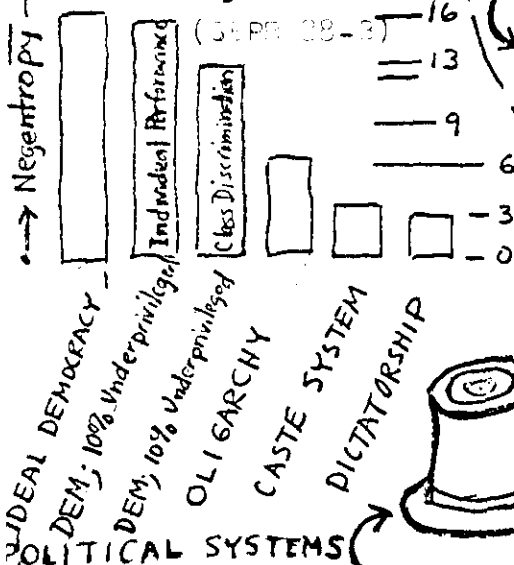 Negentropy
16
13
9
6
3
0
Individual Performance
Class Discrimination
IDEAL DEMOCRACY
DEM; 10% Underprivileged
DEM; 10% Underprivileged
OLIGARCHY
CASTE SYSTEM
DICTATORSHIP
POLITICAL SYSTEMS